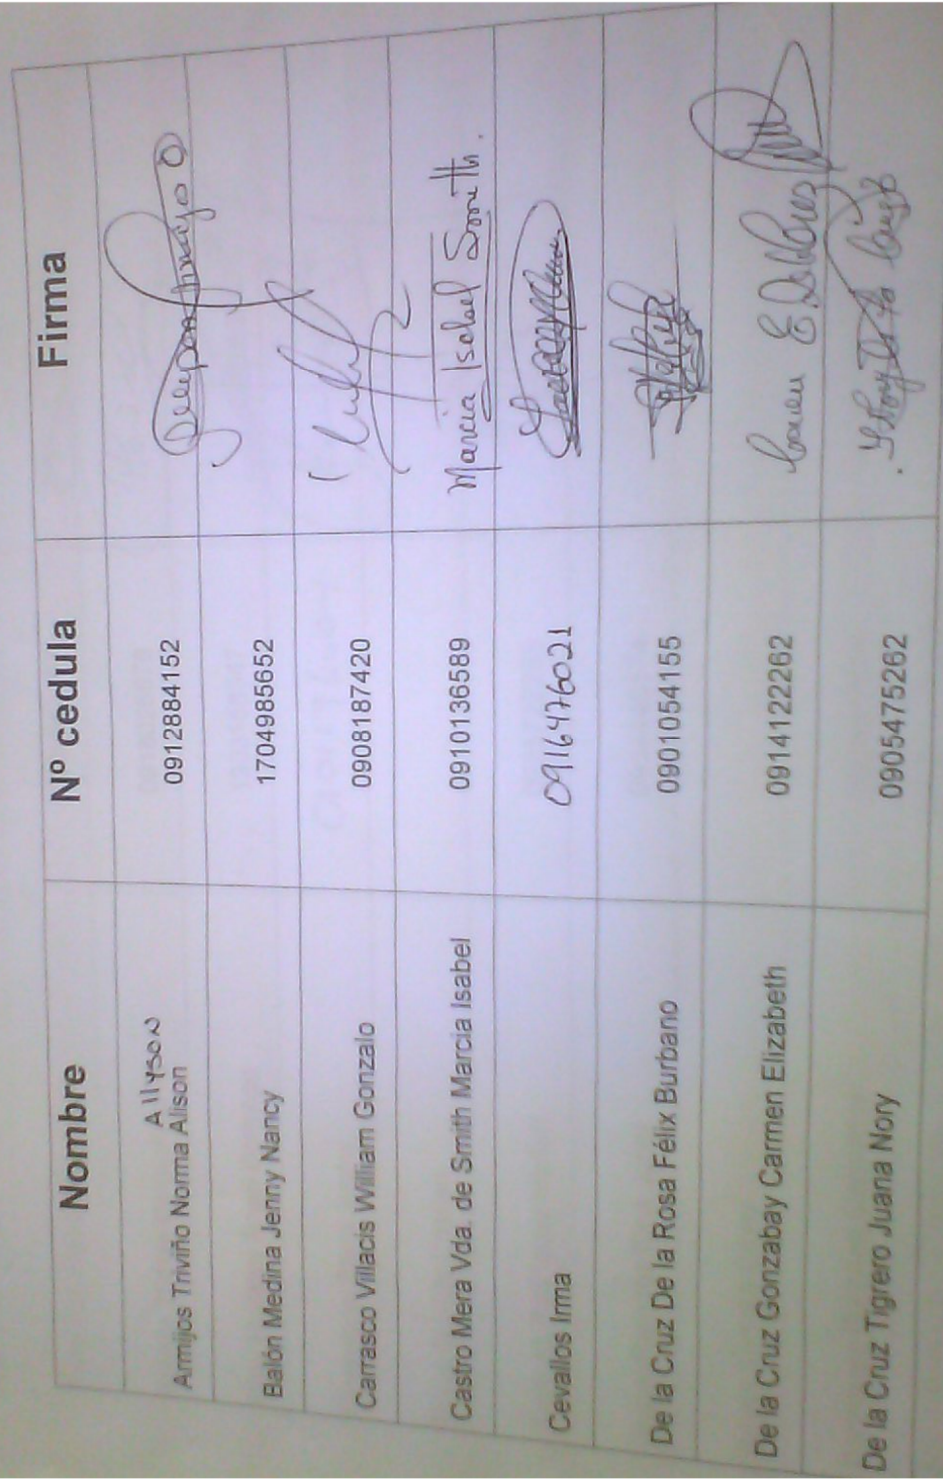 Nombre Nº cedula Firma
Allyson
Armijos Triviño Norma Alison 0912884152
Balón Medina Jenny Nancy 1704985652
Carrasco Villacis William Gonzalo 0908187420
Castro Mera Vda. de Smith Marcia Isabel 0910136589 Marcia Isabel Smith.
Cevallos Irma 0916476021
De la Cruz De la Rosa Félix Burbano 0901054155
De la Cruz Gonzabay Carmen Elizabeth 0914122262
De la Cruz Tigrero Juana Nory 0905475262